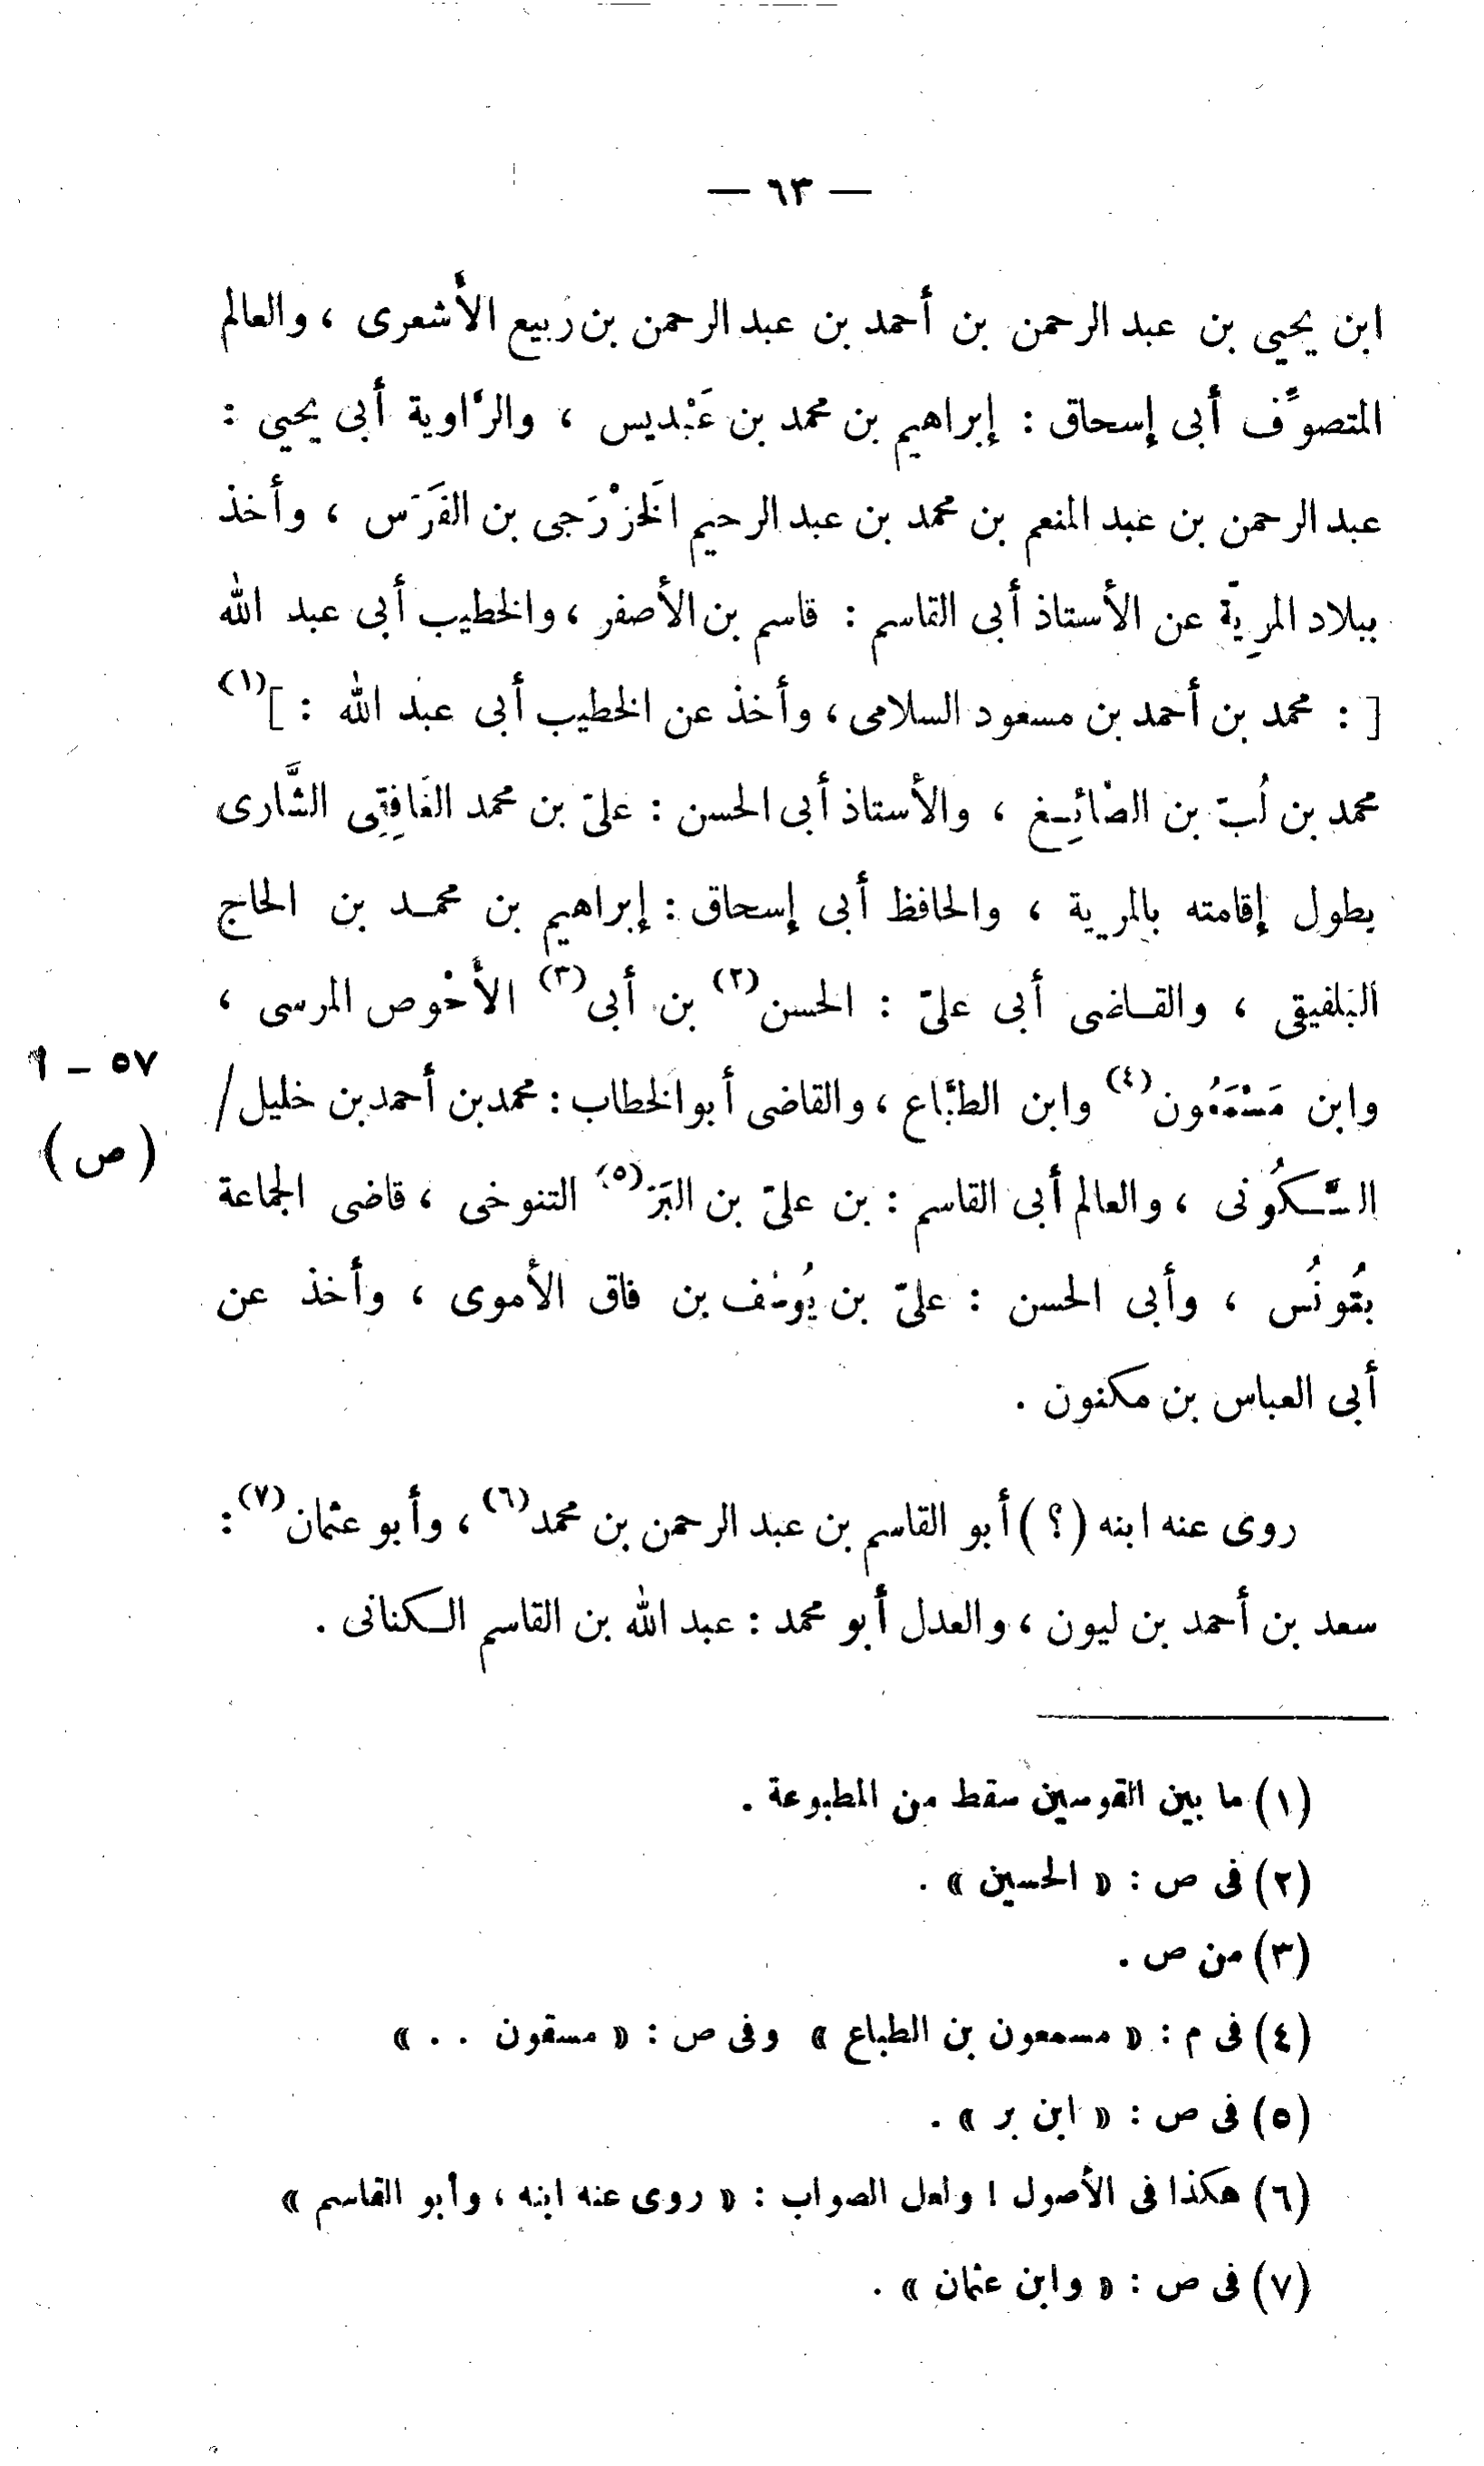 — ٦٣ —
ابن يحيى بن عبد الرحمن بن أحمد بن عبد الرحمن بن ربيع الأشعرى ، والعالم
المتصوِّف أبى إسحاق : إبراهيم بن محمد بن عَبْديس ، والرَّاوية أبى يحيى :
عبد الرحمن بن عبد المنعم بن محمد بن عبد الرحيم الخَزْرَجى بن الفَرَس ، وأخذ
ببلاد المرِيّة عن الأستاذ أبى القاسم : قاسم بن الأصفر ، والخطيب أبى عبد الله
[ : محمد بن أحمد بن مسعود السلامى ، وأخذ عن الخطيب أبى عبد الله : ](١)
محمد بن لُبّ بن الصَّائِغ ، والأستاذ أبى الحسن : علىّ بن محمد الغَافِقِى الشَّارى
بطول إقامته بالمرية ، والحافظ أبى إسحاق : إبراهيم بن محمد بن الحاج
البَلفيقى ، والقاضى أبى علىّ : الحسن(٢) بن أبى(٣) الأَحْوص المرسى ،
وابن مَسْمَعُون(٤) وابن الطبَّاع ، والقاضى أبو الخطاب : محمد بن أحمد بن خليل/
٥٧ – ١
(ص)
السَّكُونى ، والعالم أبى القاسم : بن علىّ بن البَرّ(٥) التنوخى ، قاضى الجماعة
بتُونُس ، وأبى الحسن : علىّ بن يُوسُف بن فاق الأموى ، وأخذ عن
أبى العباس بن مكنون .
روى عنه ابنه (؟) أبو القاسم بن عبد الرحمن بن محمد(٦) ، وأبو عثمان(٧) :
سعد بن أحمد بن ليون ، والعدل أبو محمد : عبد الله بن القاسم الكنانى .
(١) ما بين القوسين سقط من المطبوعة .
(٢) فى ص : « الحسين » .
(٣) من ص .
(٤) فى م : « مسمعون بن الطباع » وفى ص : « مسقون . . »
(٥) فى ص : « ابن بر » .
(٦) هكذا فى الأصول ! ولعل الصواب : « روى عنه ابنه ، وأبو القاسم »
(٧) فى ص : « وابن عثمان » .